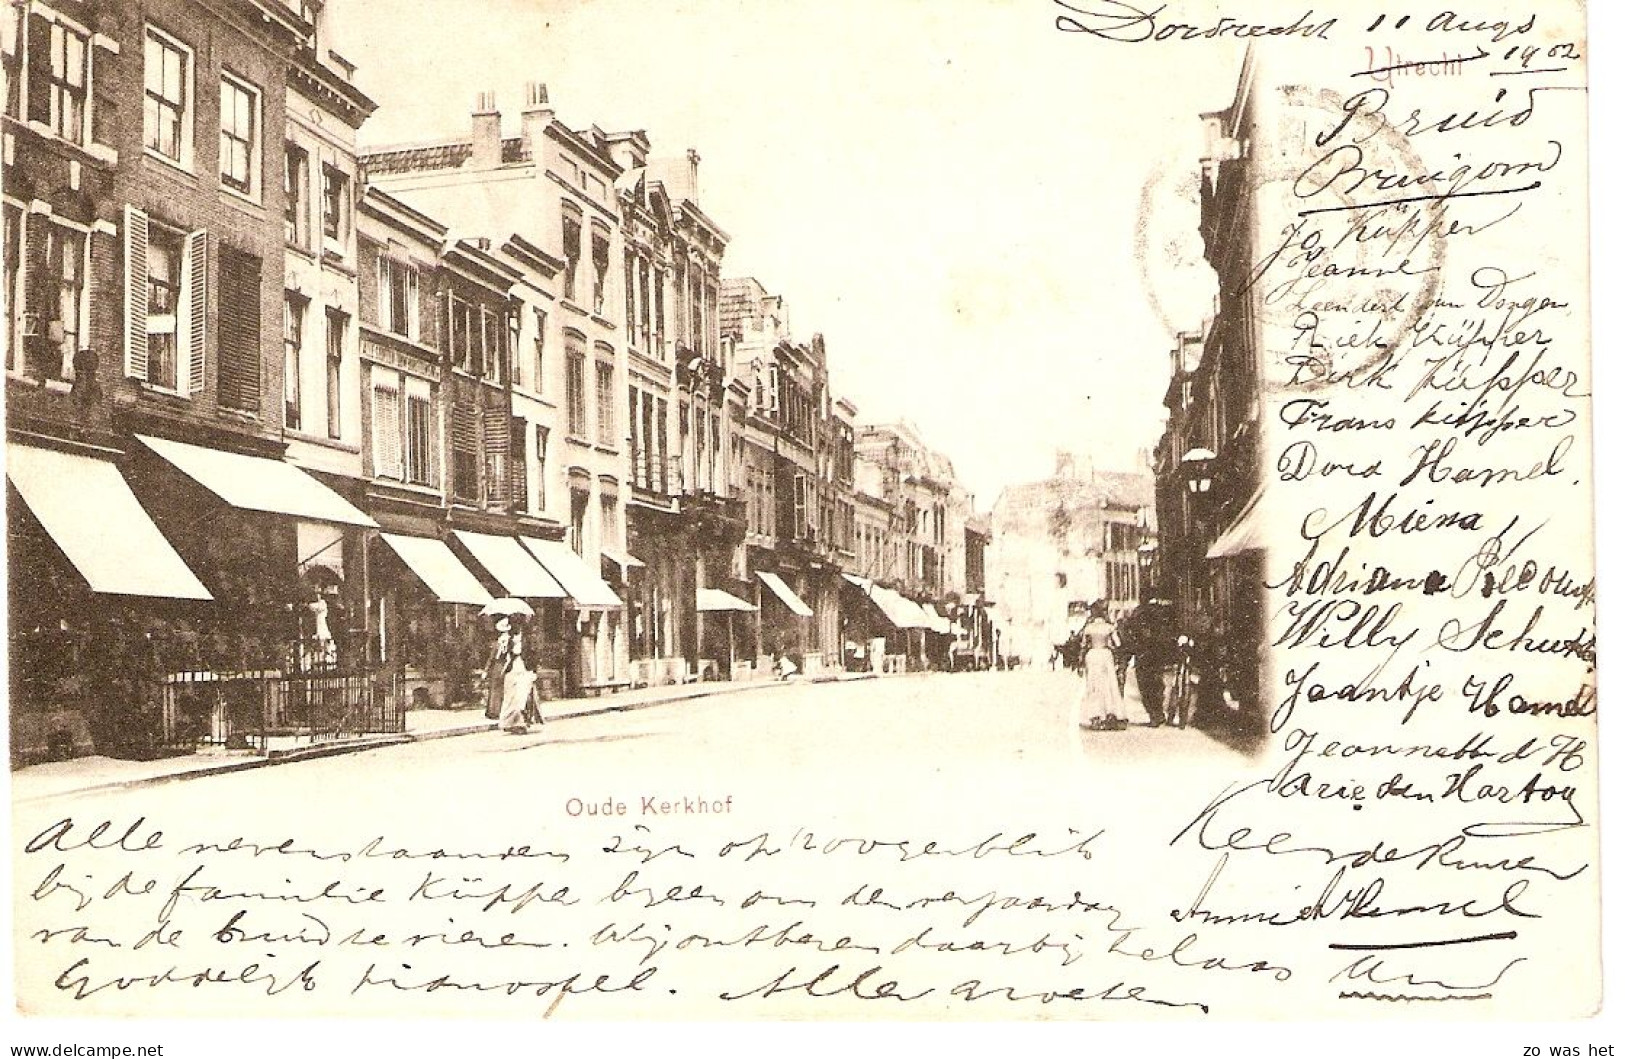 Dordrecht 11 Augs
1902
Utrecht
Bruid
Bruigom
Jo Küpper
Jeanne
Leendert van Dongen
Riek Küpper
Dirk Küpper
Frans Küpper
Dora Hamel.
Miena
Adriana
Willy Schutte
Jaantje Hamel
Jeannette d H
Arie den Hartog
Kees de Ruiter
Annie Hamel
Oude Kerkhof
Alle nevenstaanden zijn op 't oogenblik
bij de familie Küpper bijeen om den verjaardag
van de bruid te vieren. Wij ontberen daarbij helaas Uw
Goddelijk pianospel. Alle groeten
zo was het